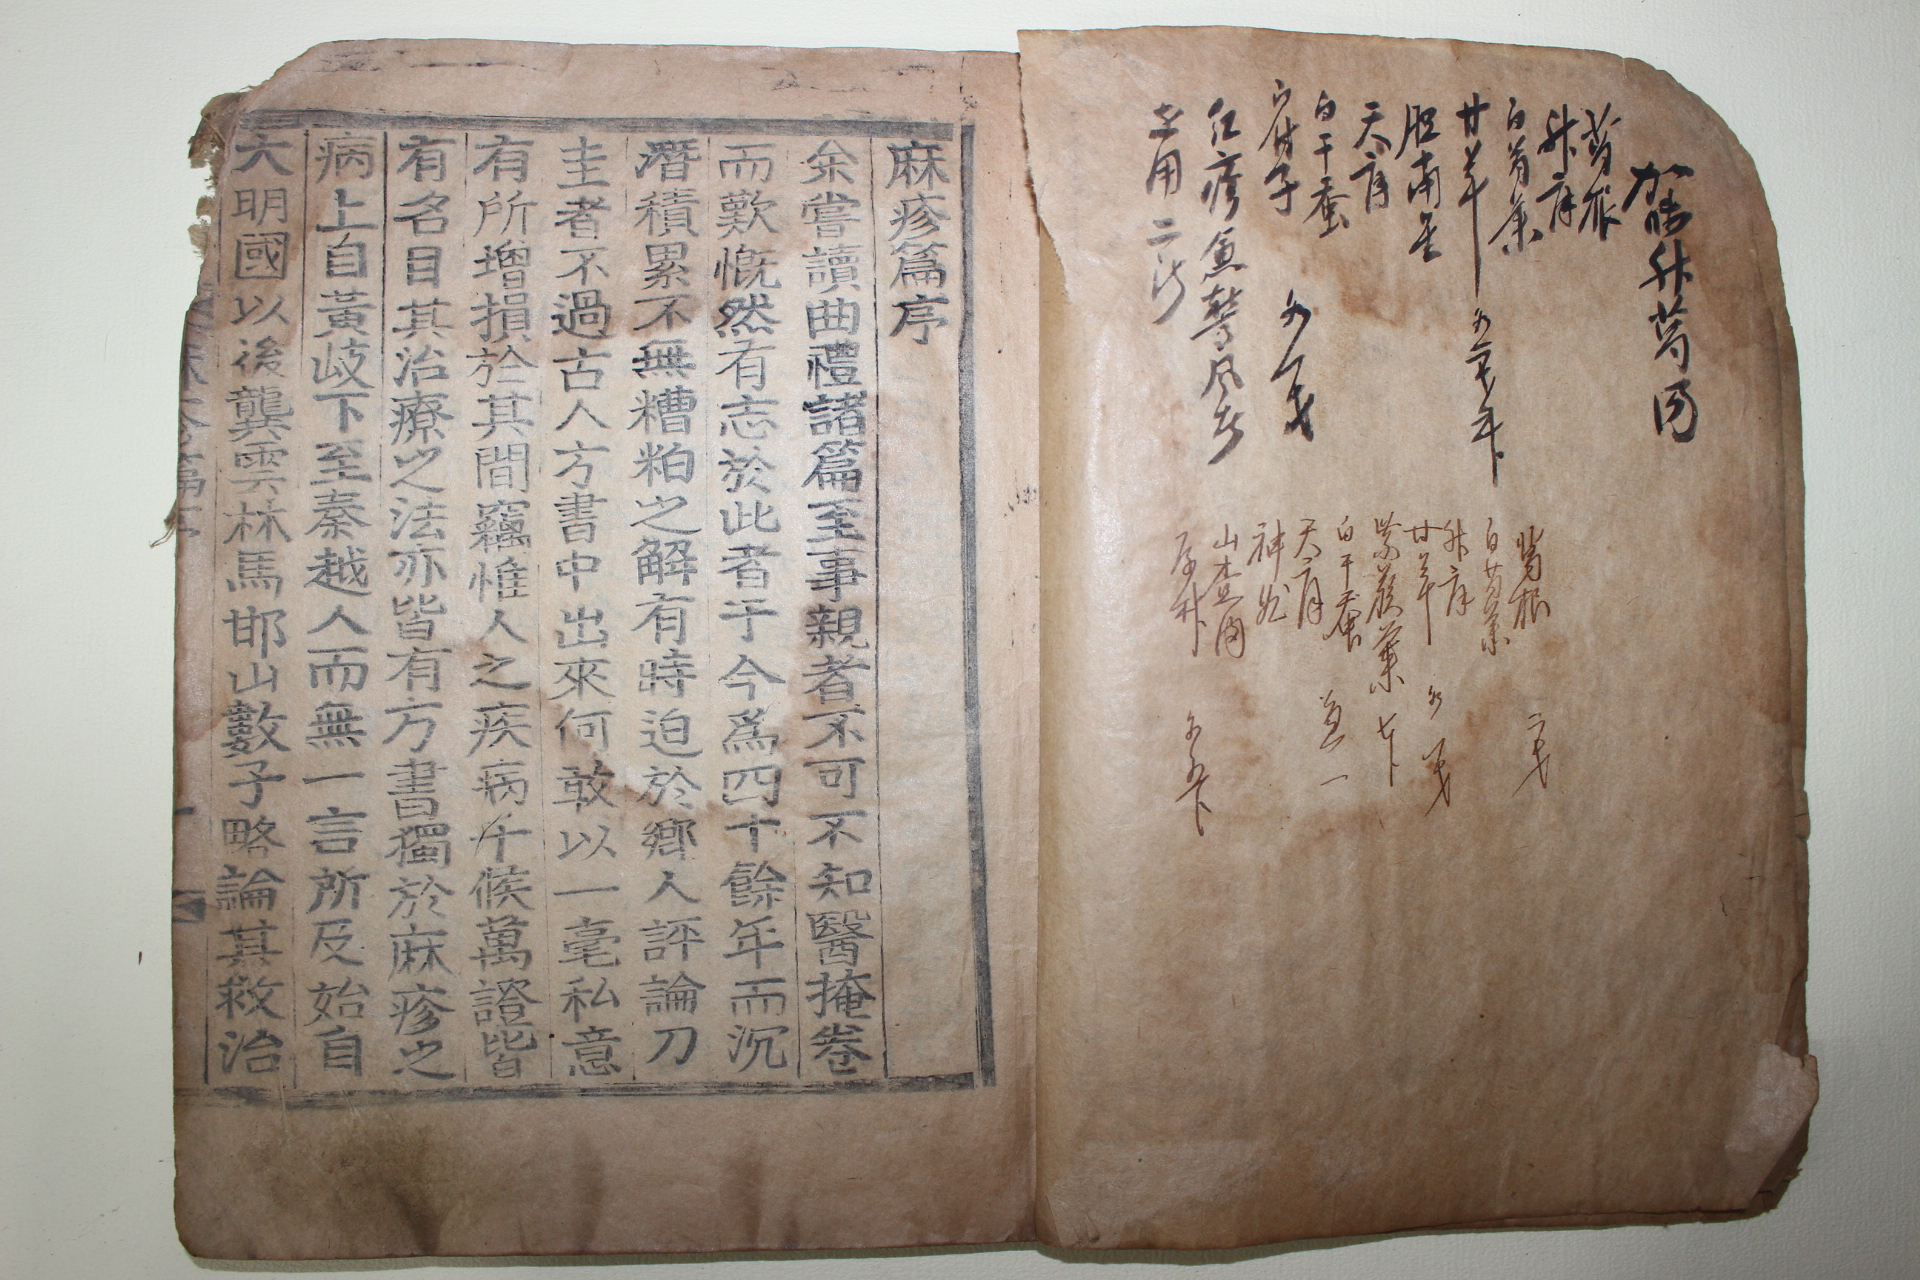 加味升葛湯
葛根
升麻
白芍藥
甘草 各一戔半
胆南星
天麻
白干蚕
白附子 各一戔
紅疹急驚風
葛根 二戔
白芍藥
升麻
甘草 各一戔
紫蘇葉 七卜
白干蚕
天麻
山查肉
各五卜
麻疹篇序
余嘗讀曲禮諸篇至事親者不可不知醫掩卷
而歎慨然有志於此者于今爲四十餘年而沉
潛積累不無糟粕之解有時迫於鄉人評論刀
圭者不過古人方書中出來何敢以一毫私意
有所增損於其間竊惟人之疾病千候萬證皆
有名目其治療之法亦皆有方書獨於麻疹之
病上自黃岐下至秦越人而無一言所及始自
大明國以後龔雲林馬邯山數子略論其救治